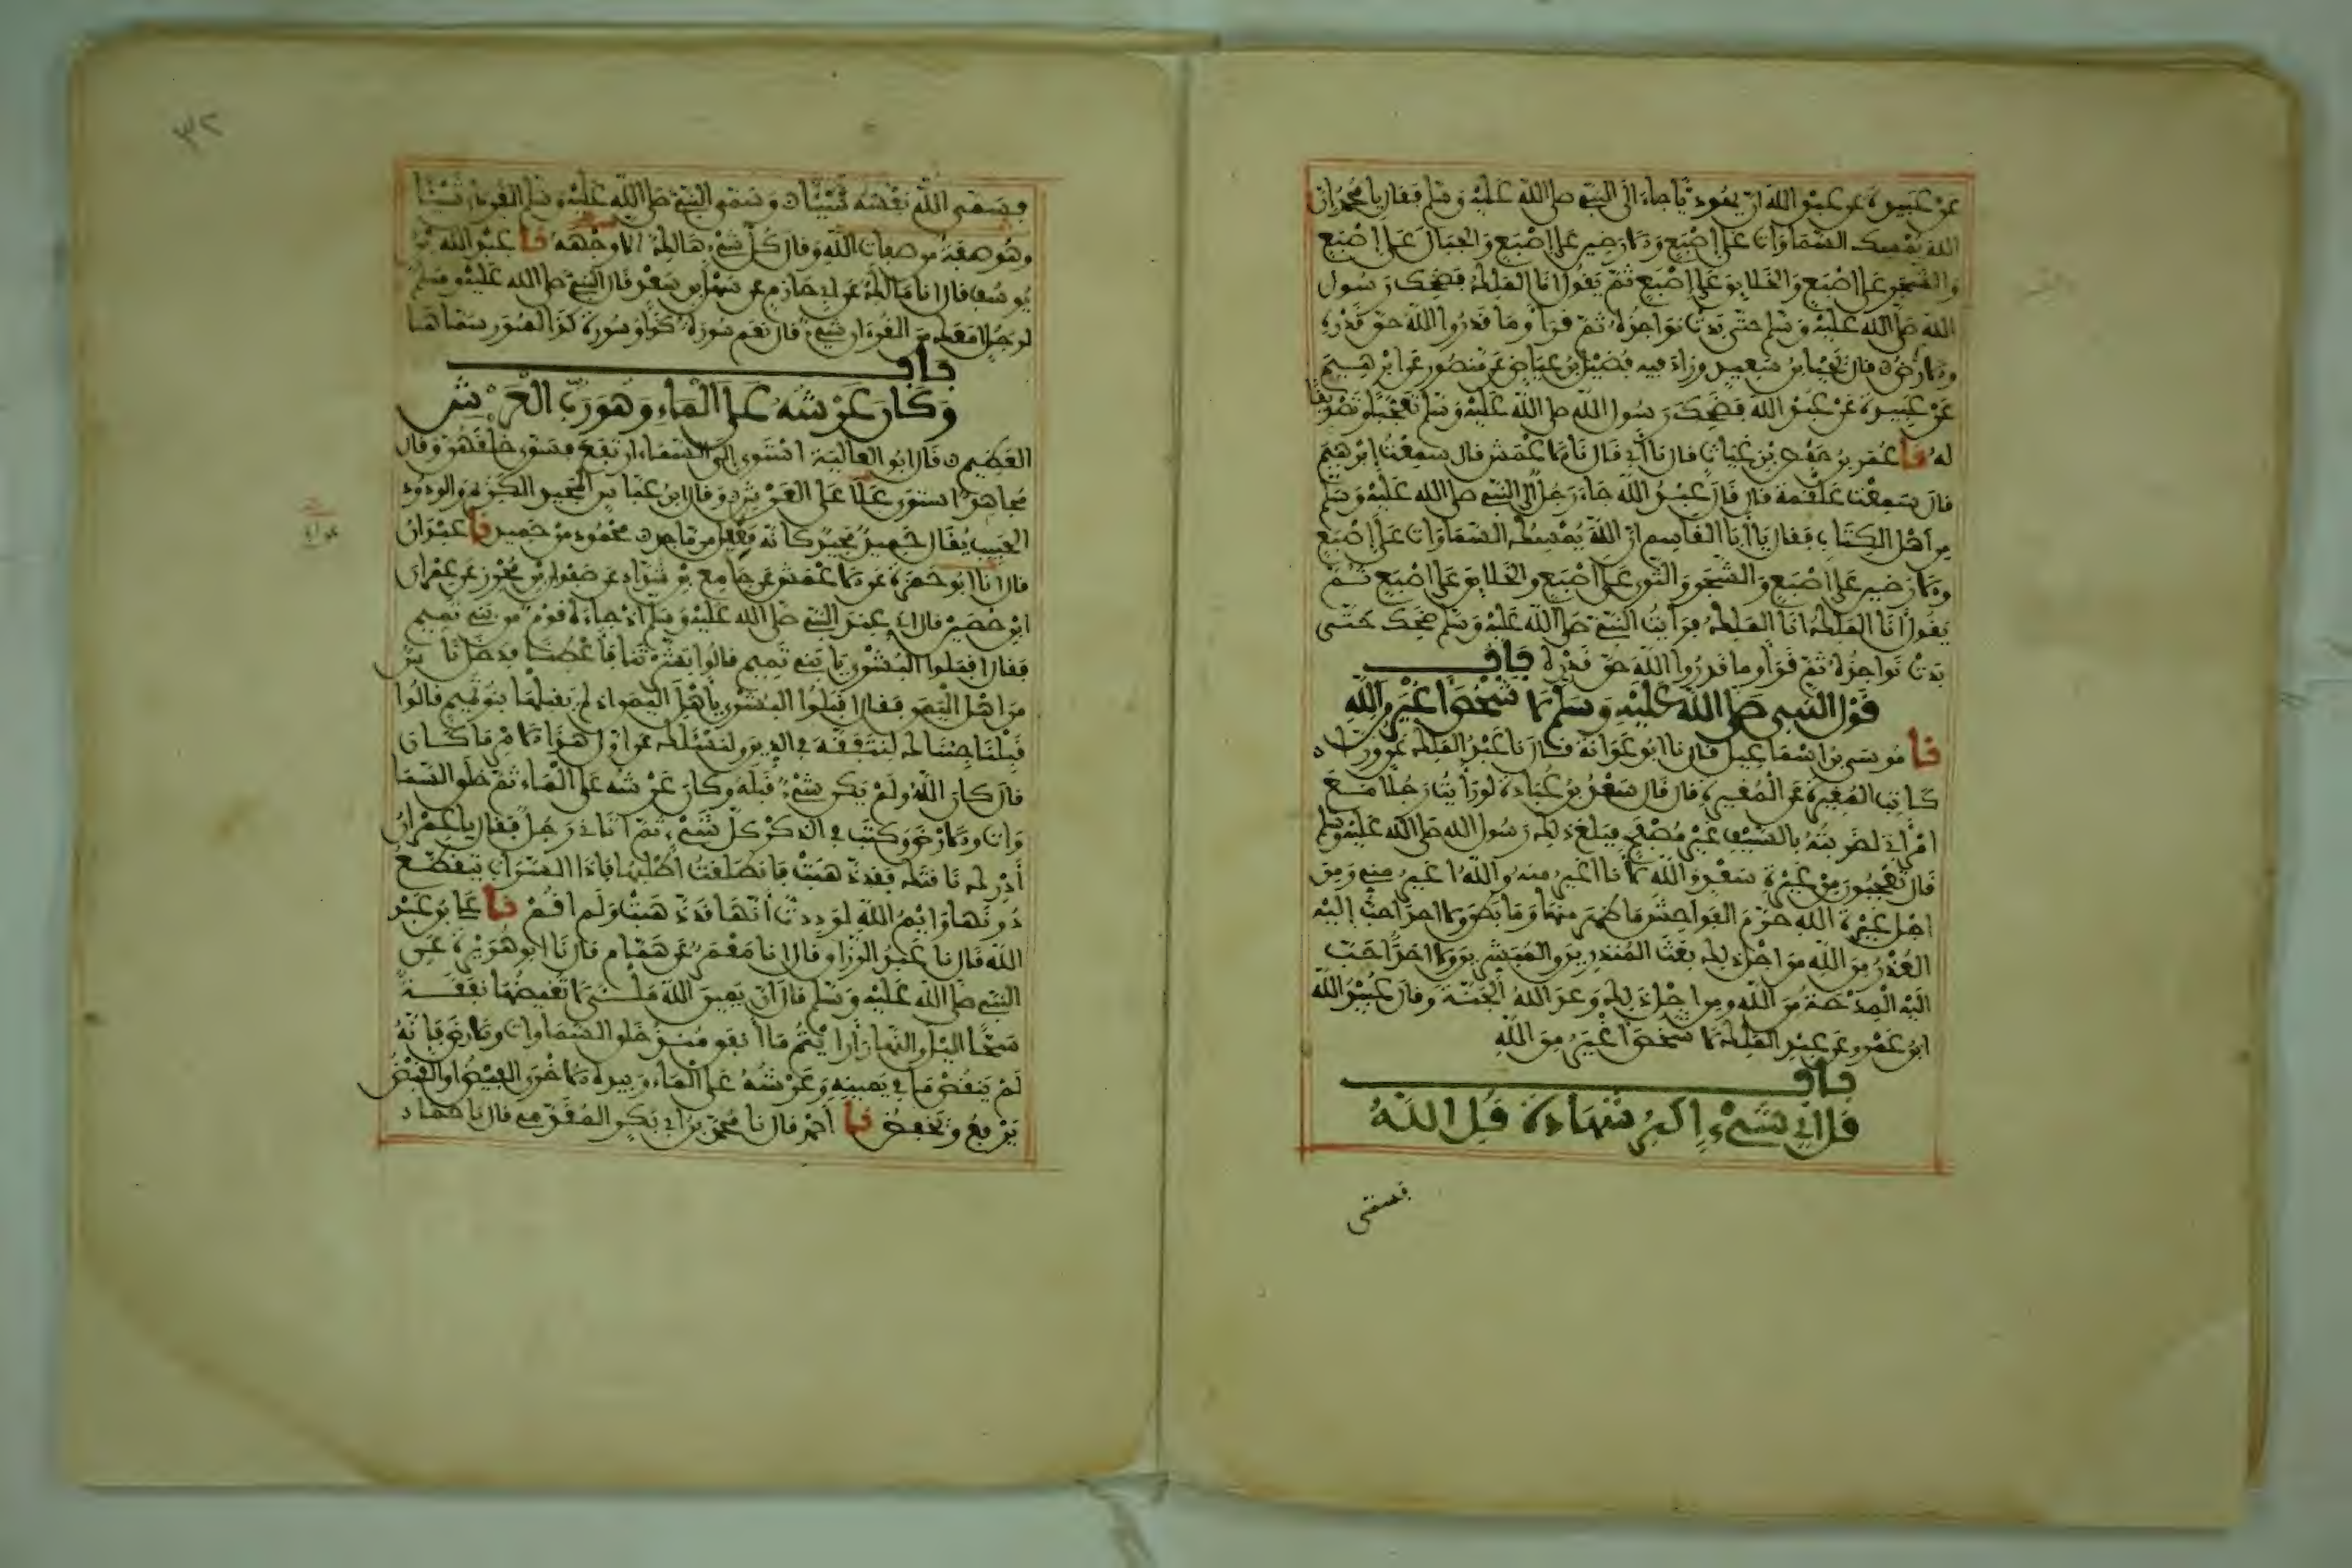 عن عبيدة عن عبد الله ان يهوديا جاء الى النبي صلى الله عليه وسلم فقال يا محمد ان
الله يمسك السماوات على إصبع والارضين على إصبع والجبال على إصبع
والشجر على اصبع والخلايق على إصبع ثم يقول انا الملك فضحك رسول
الله صلى الله عليه وسلم حتى بدت نواجذه ثم قرأ وما قدروا الله حق قدره
قال يحيى بن سعيد وزاد فيه فضيل بن عياض عن منصور عن ابرهيم
عن عبيدة عن عبد الله فضحك رسول الله صلى الله عليه وسلم تعجبا وتصديقا
له نا عمر بن حفص بن غياث قال نا أبي قال نا الاعمش قال سمعت إبرهيم
قال سمعت علقمة قال قال عبد الله جاء رجل الى النبي صلى الله عليه وسلم
من أهل الكتاب فقال يا أبا القاسم ان الله يمسك السماوات على إصبع
والارضين على اصبع والشجر والثرى على اصبع والخلايق على اصبع ثم
يقول أنا الملك انا الملك فرأيت النبي صلى الله عليه وسلم ضحك حتى
بدت نواجذه ثم قرأ وما قدروا الله حق قدره باب
قول النبي صلى الله عليه وسلم لا شخص أغير من الله
نا موسى بن اسماعيل قال نا ابو عوانة قال نا عبد الملك عن وراد
كاتب المغيرة عن المغيرة قال قال سعد بن عبادة لو رأيت رجلا مع
امرأتي لضربته بالسيف غير مصفح فبلغ ذلك رسول الله صلى الله عليه وسلم
قال تعجبون من غيرة سعد والله لأنا أغير منه والله اغير مني ومن
اجل غيرة الله حرم الفواحش ما ظهر منها وما بطن ولا احد احب إليه
العذر من الله من اجل ذلك بعث المنذرين والمبشرين ولا احد أحب
اليه المدحة من الله ومن اجل ذلك وعد الله الجنة وقال عبيد الله
ابن عمرو عن عبد الملك لا شخص أغير من الله
باب
قل اي شيء اكبر شهادة قل الله
فسمى
٣٢
فسمى الله نفسه شيئا وسمى النبي صلى الله عليه وسلم القرءان شيئا
وهو صفة من صفات الله وقال كل شيء هالك الا وجهه نا عبد الله بن
يوسف قال انا مالك عن ابي حازم عن سهل بن سعد قال النبي صلى الله عليه وسلم
لرجل امعك من القرءان شيء قال نعم سورة كذا وسورة كذا لسور سماها
باب
وكان عرشه على الماء وهو رب العرش
العظيم قال ابو العالية استوى إلى السماء ارتفع فسوى خلقهن وقال
مجاهد استوى علا على العرش وقال ابن عباس المجيد الكريم والودود
الحبيب يقال حميد مجيد كانه فعيل من ماجد محمود من حميد نا عبدان
قال انا ابو حمزة عن الاعمش عن جامع بن شداد عن صفوان بن محرز عن عمران
ابن حصين قال إني عند النبي صلى الله عليه وسلم إذ جاءه قوم من بني تميم
فقال اقبلوا البشرى يا بني تميم قالوا بشرتنا فأعطنا فدخل ناس
من اهل اليمن فقال اقبلوا البشرى يا أهل اليمن إذ لم يقبلها بنو تميم قالوا
قبلنا جئناك لنتفقه في الدين ولنسئلك عن اول هذا الامر ما كان
قال كان الله ولم يكن شيء قبله وكان عرشه على الماء ثم خلق السما
وات والارض وكتب في الذكر كل شيء ثم اتاني رجل فقال يا عمران
أدرك ناقتك فقد ذهبت فانطلقت أطلبها فاذا السراب ينقطع
دونها وايم الله لوددت أنها قد ذهبت ولم اقم نا علي بن عبد
الله قال نا عبد الرزاق قال انا معمر عن همام قال نا ابو هريرة عن
النبي صلى الله عليه وسلم قال ان يمين الله ملئى لا تغيضها نفقة
سحا الليل والنهار أرايتم ما أنفق منذ خلق السماوات والارض فإنه
لم ينقص ما في يمينه وعرشه على الماء وبيده الاخرى الفيض او القبض
يرفع ويخفض نا أحمد قال نا محمد بن ابي بكر المقدمي قال نا حماد